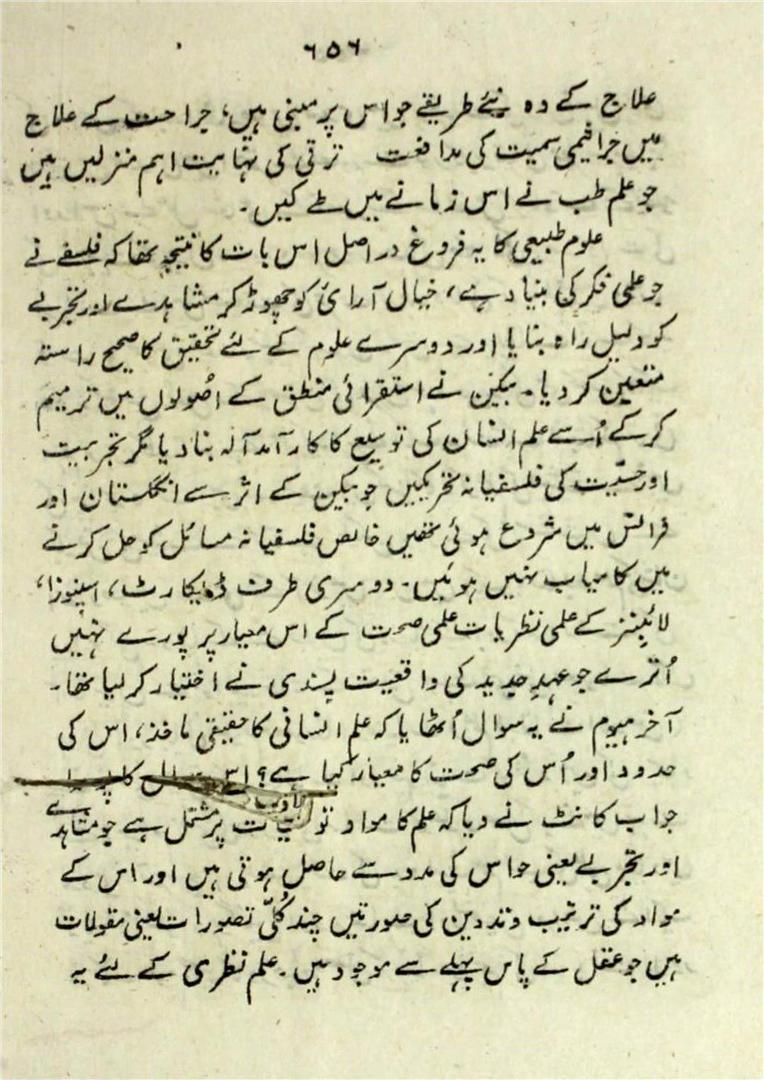 ٦٥٦
علاج کے وہ نئے طریقے جو اس پر مبنی ہیں، جراحت کے علاج
میں جراثیمی سمیت کی مدافعت ترقی کی نہایت اہم منزلیں ہیں
جو علم طب نے اس زمانے میں طے کیں۔
علوم طبیعی کا یہ فروغ دراصل اس بات کا نتیجہ تھا کہ فلسفے نے
جو علمی فکر کی بنیاد ہے، خیال آرائی کو چھوڑ کر مشاہدے اور تجربے
کو دلیل راہ بنایا اور دوسرے علوم کے لئے تحقیق کا صحیح راستہ
متعین کر دیا۔ بیکن نے استقرائی منطق کے اُصولوں میں ترمیم
کر کے اُسے علم انسان کی توسیع کا کارآمد آلہ بنا دیا مگر تجربیت
اور حسیّت کی فلسفیانہ تحریکیں جو بیکن کے اثر سے انگلستان اور
فرانس میں شروع ہوئی تھیں خالص فلسفیانہ مسائل کو حل کرنے
میں کامیاب نہیں ہوئیں۔ دوسری طرف ڈیکارٹ، اسپنوزا،
لائبنز کے علمی نظریات علمی صحت کے اس معیار پر پورے نہیں
اُترے جو عہدِ جدید کی واقعیت پسندی نے اختیار کر لیا تھا۔
آخر ہیوم نے یہ سوال اُٹھایا کہ علم انسانی کا حقیقی ماخذ، اس کی
حدود اور اُس کی صحت کا معیار کیا ہے؟ اس سوال کا
جواب کانٹ نے دیا کہ علم کا مواد تو پر مشتمل ہے جو مشاہدے
اور تجربے یعنی حواس کی مدد سے حاصل ہوتی ہیں اور اس کے
مواد کی ترتیب و تدوین کی صورتیں چند کُلّی تصورات یعنی مقولات
ہیں جو عقل کے پاس پہلے سے موجود ہیں۔ علم نظری کے لئے یہ